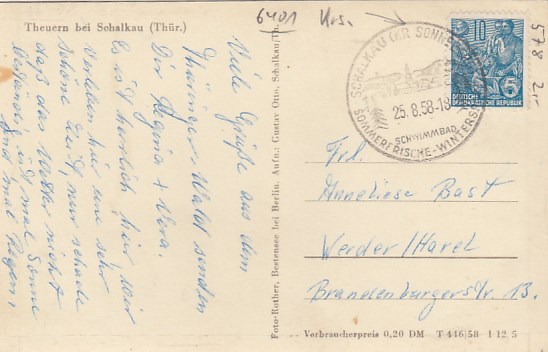 6401 Krs.
Theuern bei Schalkau (Thür.)
Viele Grüße aus dem
Thüringer Wald senden
Dir Regina + Vera.
Es ist herrlich hier. Wir
verleben hier eine sehr
schöne Zeit, nur schade
daß das Wetter nicht
beständig ist, mal Sonne
und mal Regen.
Foto-Rother, Bestensee bei Berlin. Aufn.: Gustav Otto, Schalkau/Th.
SCHALKAU KR SONNEBERG
25.8.58-18
SCHWIMMBAD
SOMMERFRISCHE - WINTERSPORT
10
DEUTSCHE
DEMOKRATISCHE REPUBLIK
578
Frl.
Anneliese Bast
Werder/Havel
Brandenburgerstr. 13.
Verbraucherpreis 0,20 DM T 446/58 I 12 5